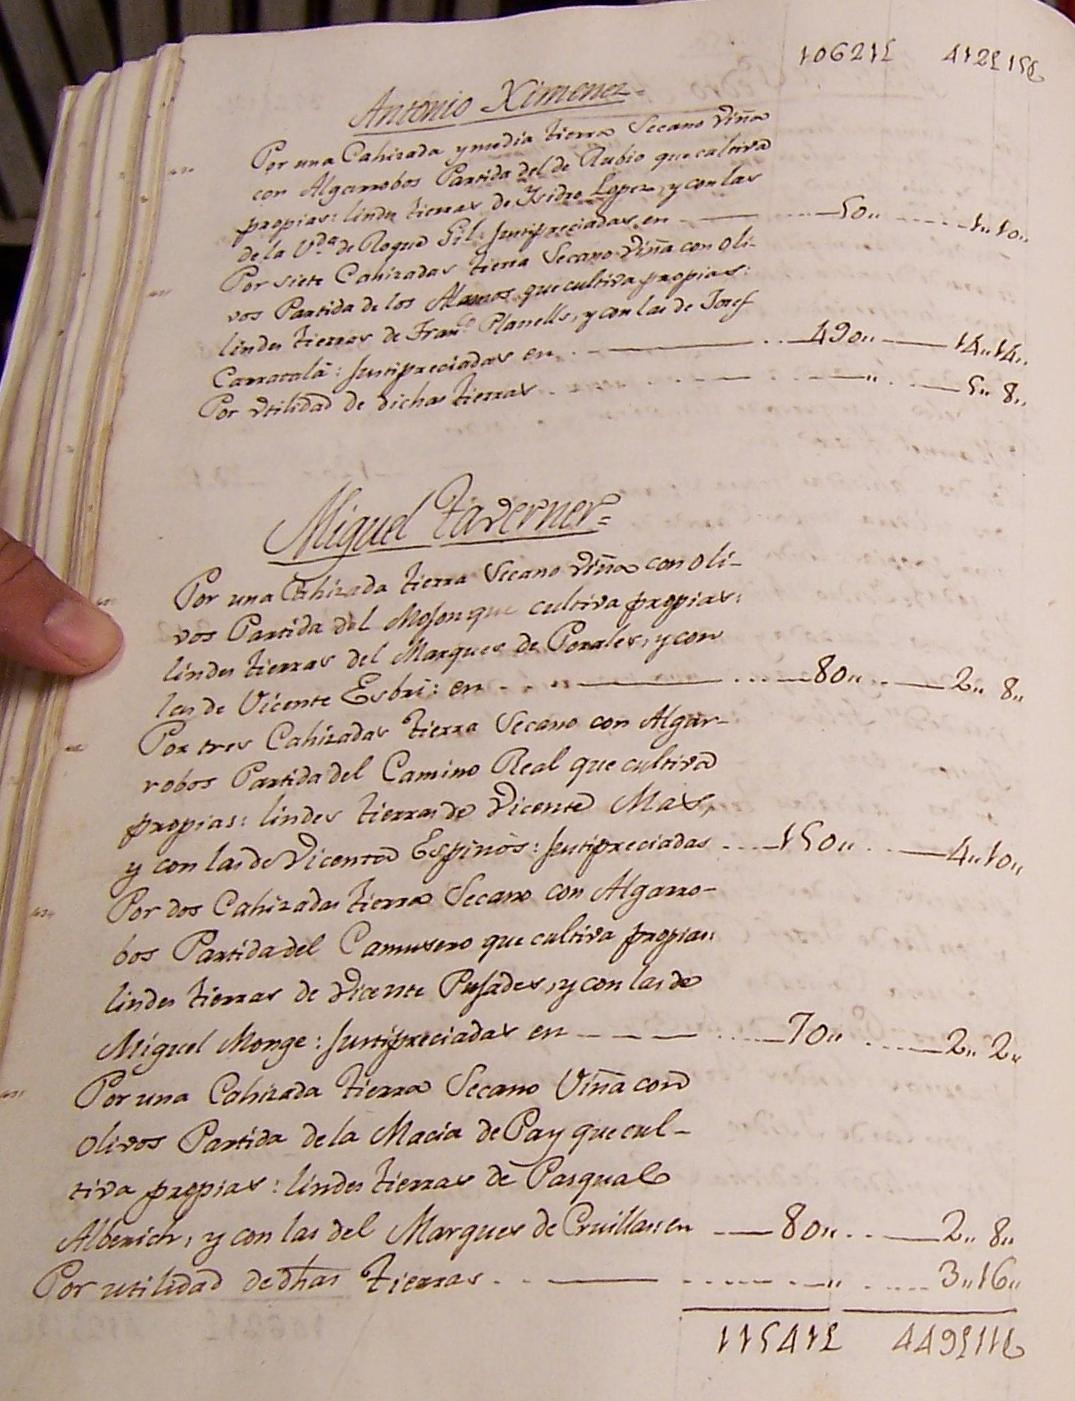 10621£ 412£15 9
Antonio Ximenez=
Por una Cahizada y media tierra Secano Viña
con Algarrobos Partida del de Rubio que cultiva
propias: lindes tierras de Ysidro Lopez, y con las
de la V.da de Roque Gil: Justipreciadas en 50,, 1,, 10,,
Por siete Cahizadas tierra Secano Viña con Oli-
vos Partida de los Alamos que cultiva propias:
lindes tierras de Fran.co Planells, y con las de Josef
Carratalá: Justipreciadas en 490,, 14,, 14,,
Por Vtilidad de dichas tierras ,, 5,, 8,,
Miguel Taverner=
Por una Cahizada tierra Secano Viña con Oli-
vos Partida del Moson que cultiva propias:
lindes tierras del Marques de , y con
las de Vicente Esbri: en 80,, 2,, 8,,
Por tres Cahizadas tierra Secano con Algar-
robos Partida del Camino Real que cultiva
propias: lindes tierras de Vicente Mas,
y con las de Vicente Espinós: Justipreciadas 150,, 4,, 10,,
Por dos Cahizadas tierra Secano con Algarro-
bos Partida del que cultiva propias:
lindes tierras de Vicente Pusades, y con las de
Miguel Monge: Justipreciadas en 70,, 2,, 2,,
Por una Cahizada tierra Secano Viña con
Olivos Partida de la Macia de Pay que cul-
tiva propias: lindes tierras de Pasqual
Alberich, y con las del Marques de Cruillas: en 80,, 2,, 8,,
Por utilidad de dhas Tierras ,, 3,, 16,,
11541£ 449£11 9